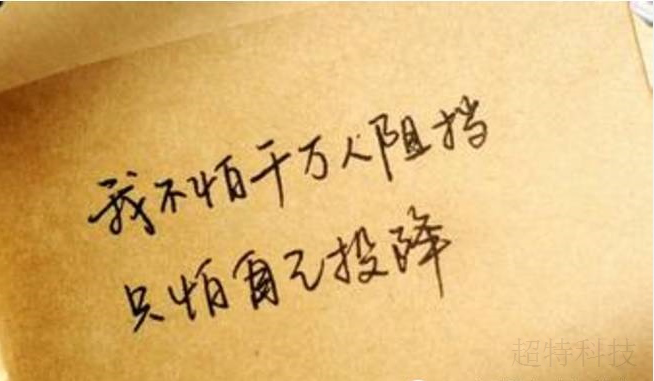 我不怕千万人阻挡
只怕自己投降
超特科技